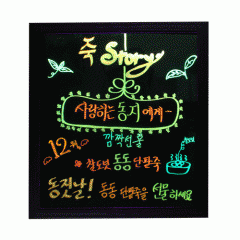 죽 Story
사랑하는 동지에게~
깜짝선물
12月
찰도넛 동동 단팥죽
동짓날! 동동 단팥죽을 선물하세요